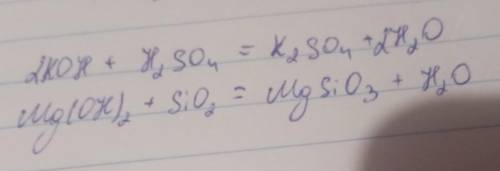 2KOH + H₂SO₄ = K₂SO₄ + 2H₂O
Mg(OH)₂ + SiO₂ = MgSiO₃ + H₂O